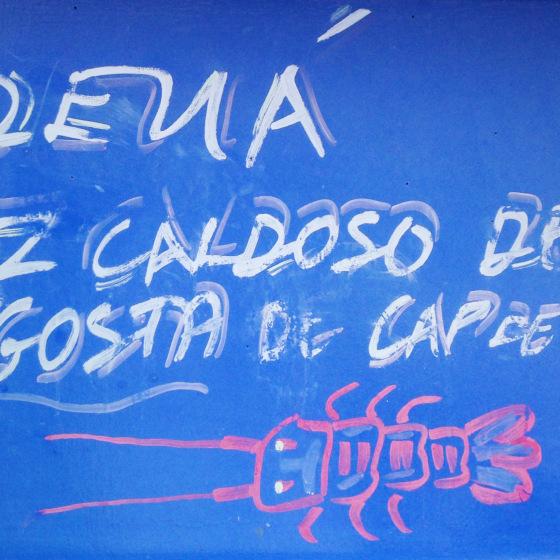 DEUÁ
Z CALDOSO DE
GOSTA DE CAP DE